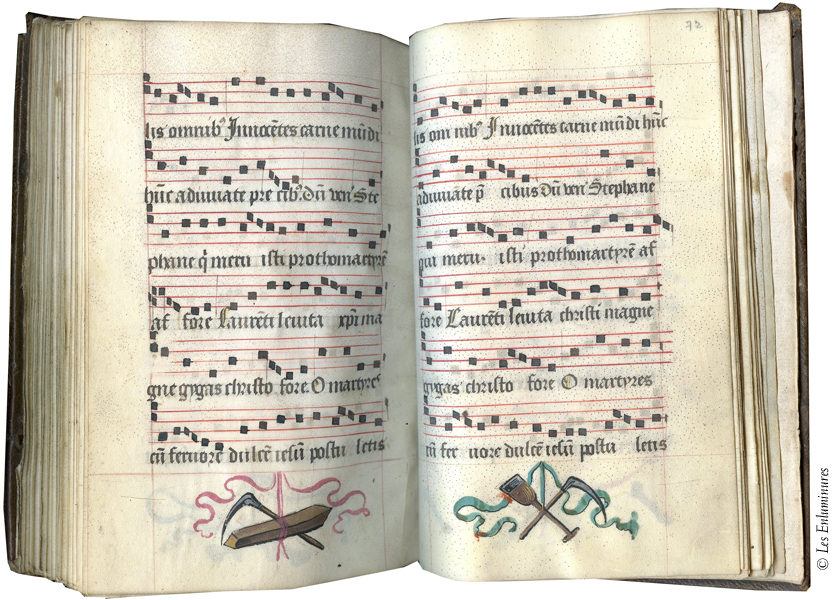 lis omnibꝰ Innocētes carne mūdi
hūc adiuuate pre cibꝰ. Dūi ven' Ste
phane q̄ meru isti prothomartyrē
af fore Laurēti leuita xp̄i ma
gne gygas christo fore O martyres
cū feruore dulcē iesū postu letis
72
lis om nibꝰ Innocētes carne mūdi hūc
adiuuate p̄ cibus Dūi ven' Stephane
qui meru. isti prothomartyrē af
fore Laurēti leuita christi magne
gygas christo fore O martyres
cū fer uore dulcē iesū postu letis
© Les Enluminures